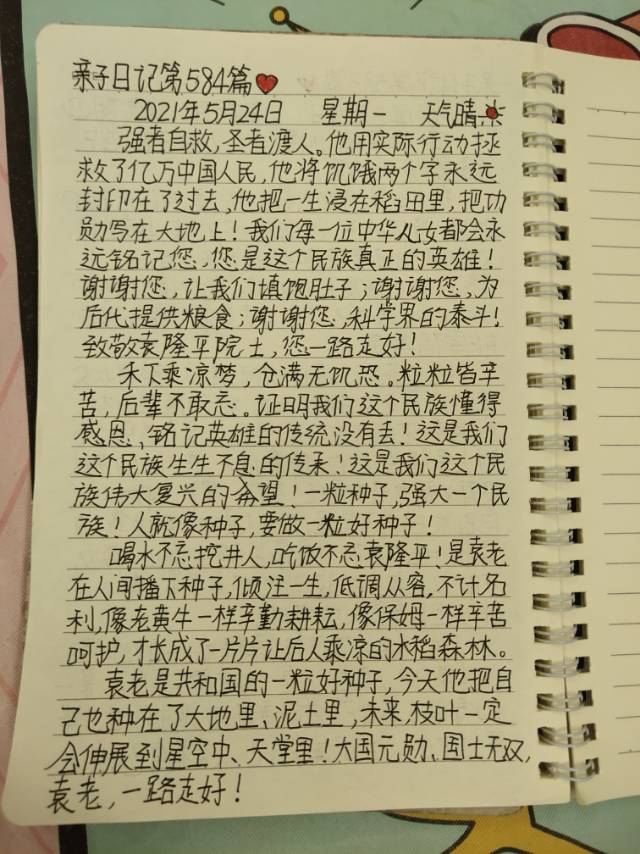 亲子日记第584篇
2021年5月24日 星期一 天气晴
强者自救,圣者渡人。他用实际行动拯
救了亿万中国人民,他将饥饿两个字永远
封印在了过去,他把一生浸在稻田里,把功
勋写在大地上!我们每一位中华儿女都会永
远铭记您,您是这个民族真正的英雄!
谢谢您,让我们填饱肚子;谢谢您,为
后代提供粮食;谢谢您,科学界的泰斗!
致敬袁隆平院士,您一路走好!
禾下乘凉梦,仓满无饥恐。粒粒皆辛
苦,后辈不敢忘。证明我们这个民族懂得
感恩、铭记英雄的传统没有丢!这是我们
这个民族生生不息的传承!这是我们这个民
族伟大复兴的希望!一粒种子,强大一个民
族!人就像种子,要做一粒好种子!
喝水不忘挖井人,吃饭不忘袁隆平!是袁老
在人间播下种子,倾注一生,低调从容,不计名
利,像老黄牛一样辛勤耕耘,像保姆一样辛苦
呵护,才长成了一片片让后人乘凉的水稻森林。
袁老是共和国的一粒好种子,今天他把自
己也种在了大地里、泥土里,未来,枝叶一定
会伸展到星空中、天堂里!大国元勋、国士无双,
袁老,一路走好!